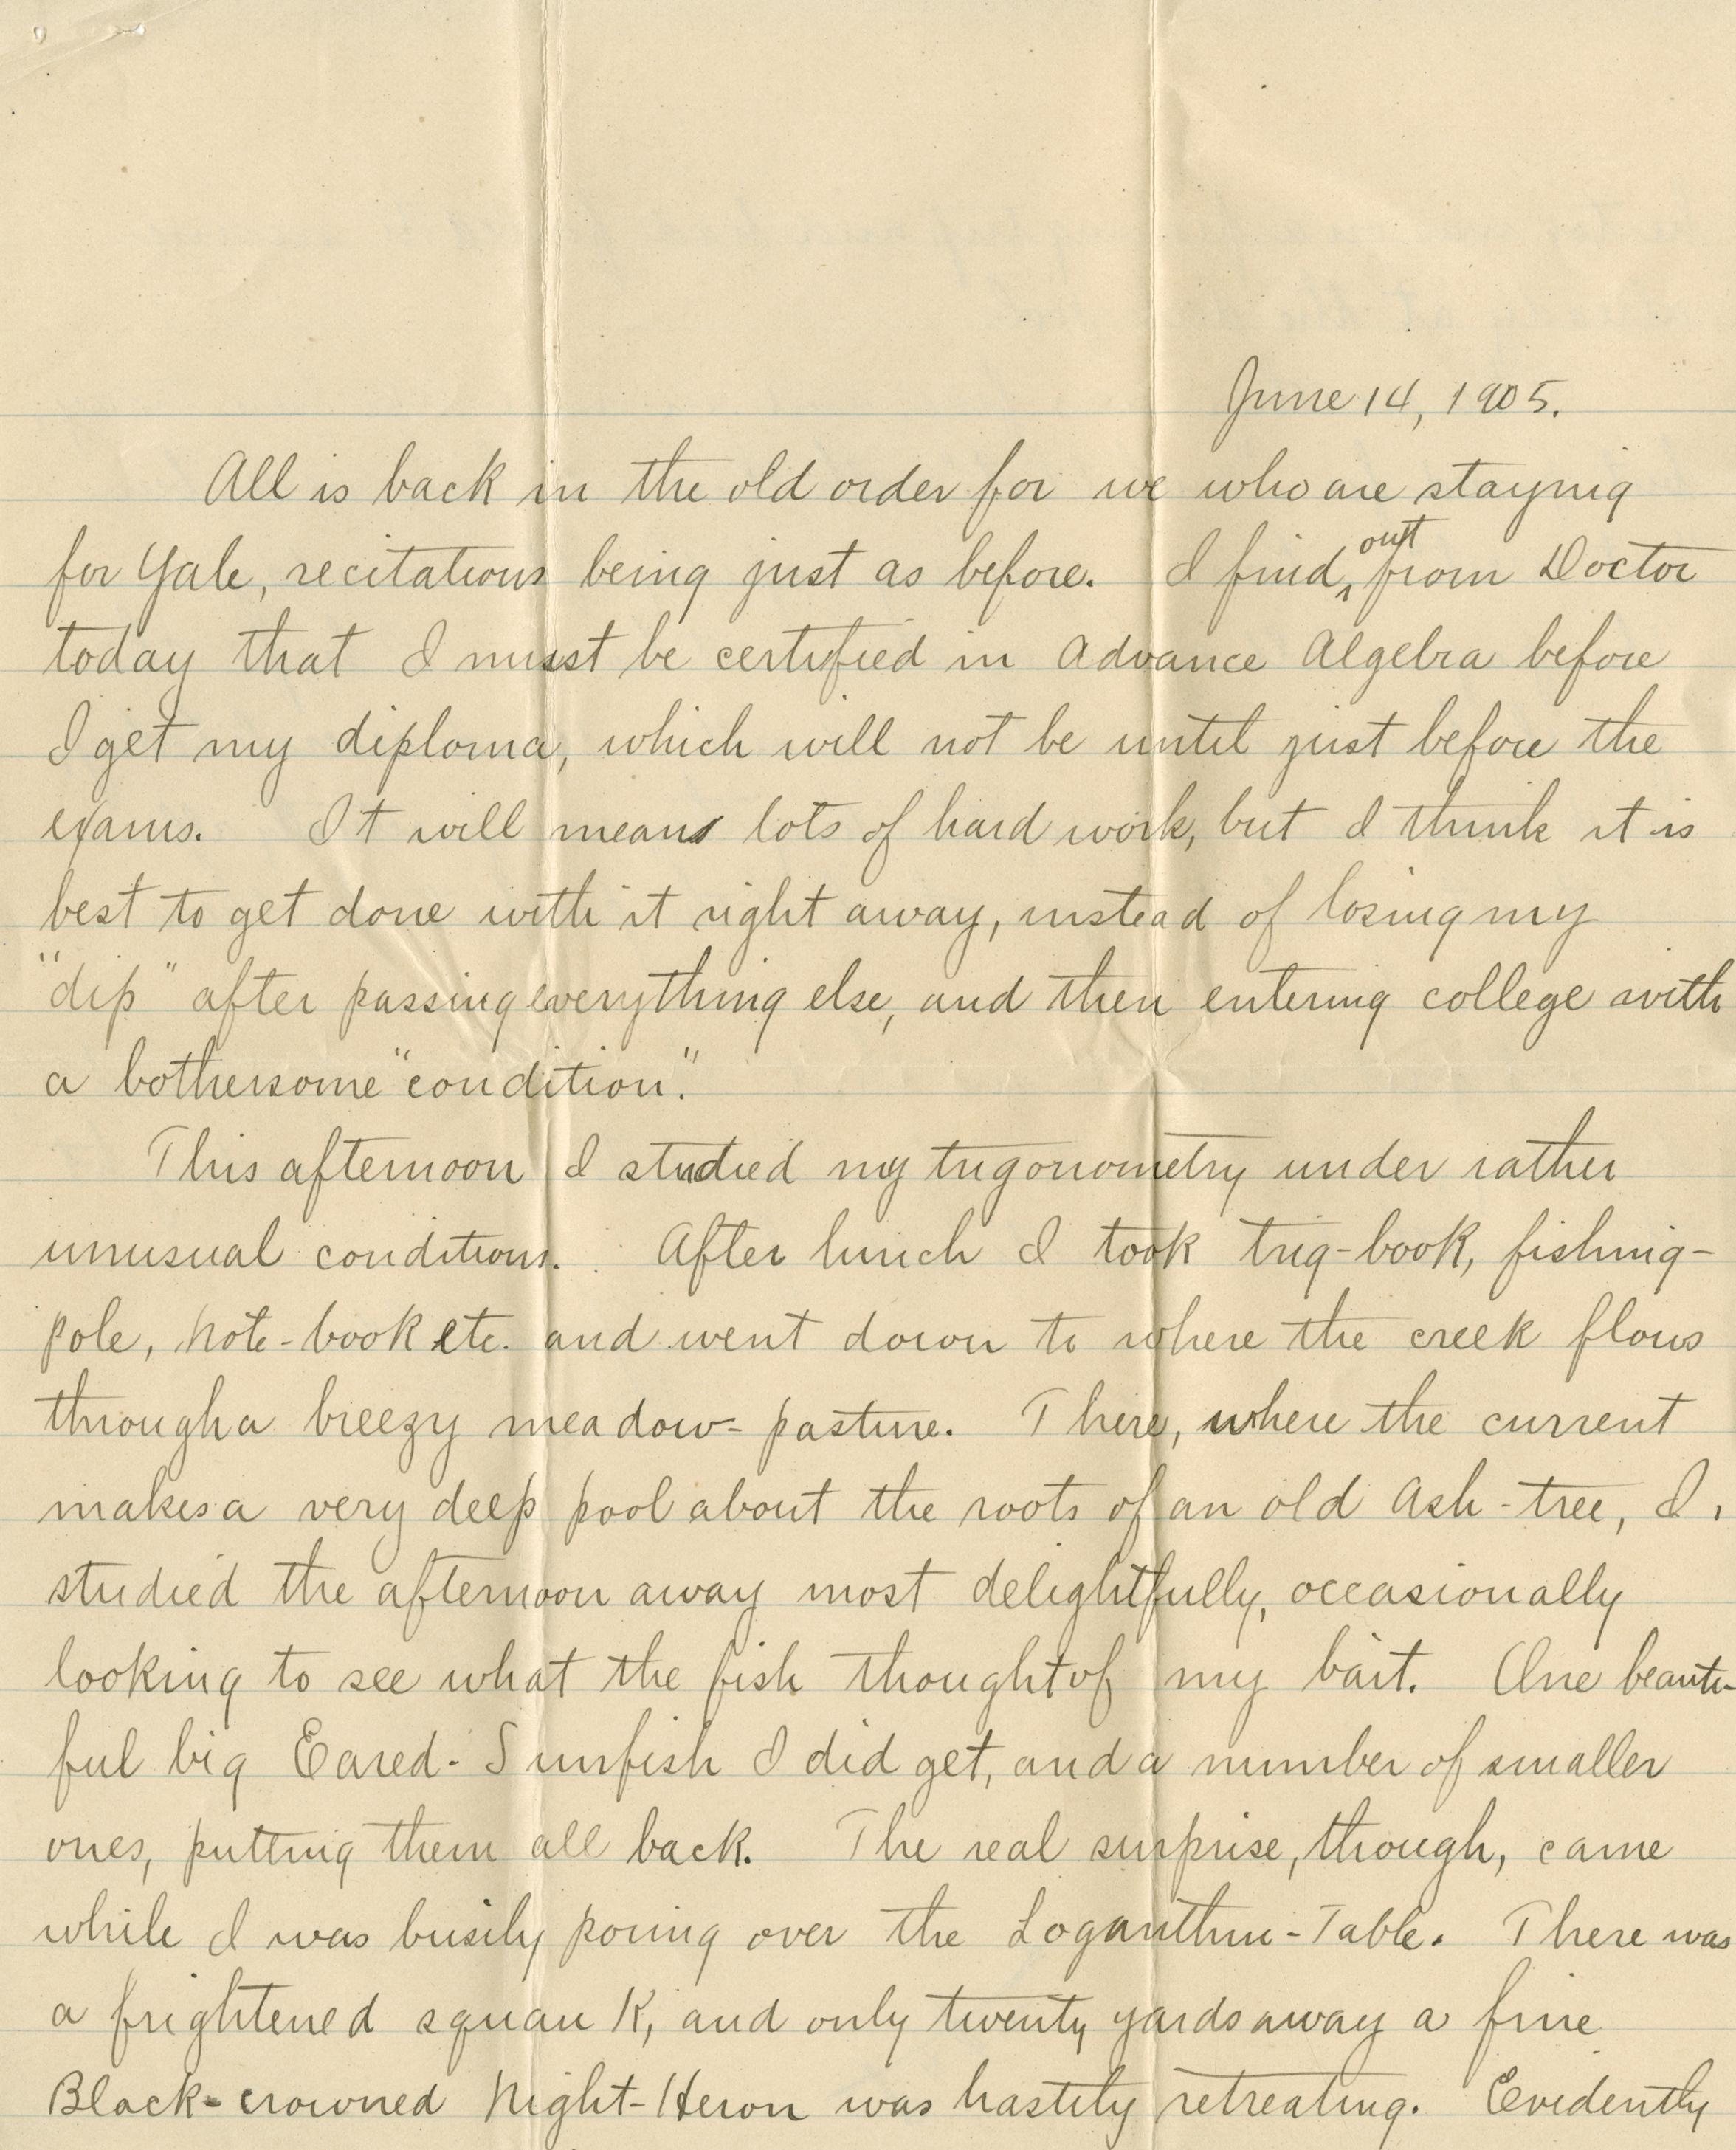 June 14, 1905.
All is back in the old order for we who are staying
for Yale, recitations being just as before. I find out from Doctor
today that I must be certified in Advance Algebra before
I get my diploma, which will not be until just before the
exams. It will mean lots of hard work, but I think it is
best to get done with it right away, instead of losing my
"dip" after passing everything else, and then entering college with
a bothersome "condition."
This afternoon I studied my trigonometry under rather
unusual conditions. After lunch I took trig-book, fishing-
pole, note-book etc. and went down to where the creek flows
through a breezy meadow-pasture. There, where the current
makes a very deep pool about the roots of an old Ash-tree, I
studied the afternoon away most delightfully, occasionally
looking to see what the fish thought of my bait. One beauti-
ful big Eared-Sunfish I did get, and a number of smaller
ones, putting them all back. The real surprise, though, came
while I was busily poring over the Logarithm-Table. There was
a frightened squawk, and only twenty yards away a fine
Black-crowned Night-Heron was hastily retreating. Evidently